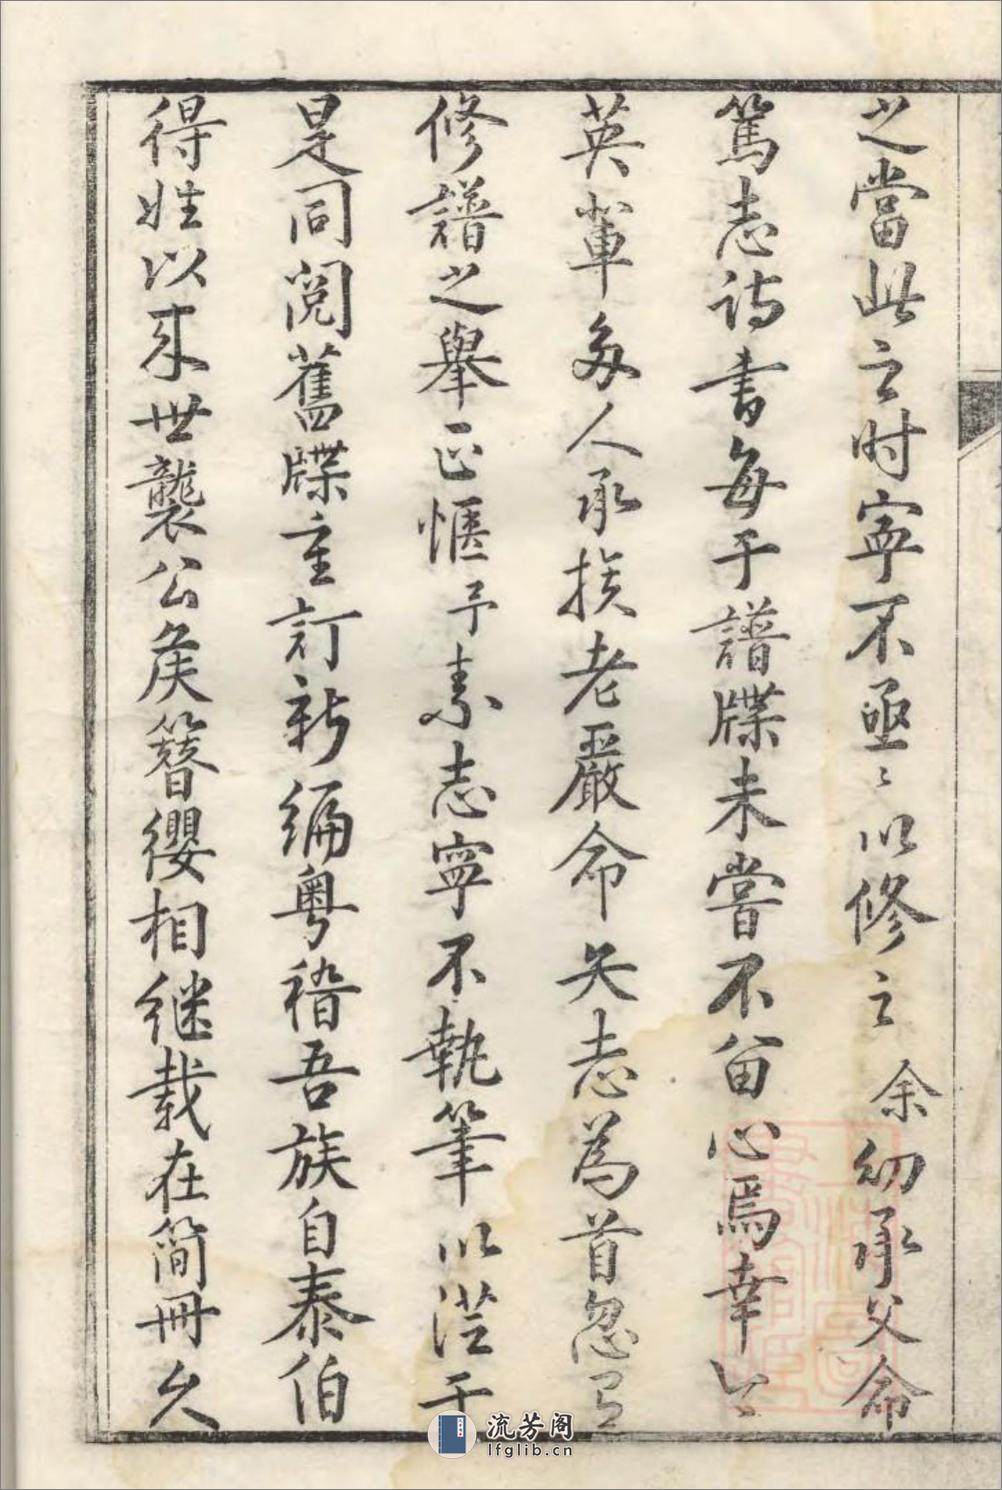 之當此之时寧不亟〻以修之余幼承父命
篤志詩書每于譜牒未嘗不留心焉幸公
英輩多人承族老嚴命矢志為首忽有
修譜之舉正愜予素志寧不執筆以從于
是同閱舊牒重訂新編粵稽吾族自泰伯
得姓以来世襲公侯簪纓相继载在简冊久
流芳阁
lfglib.cn